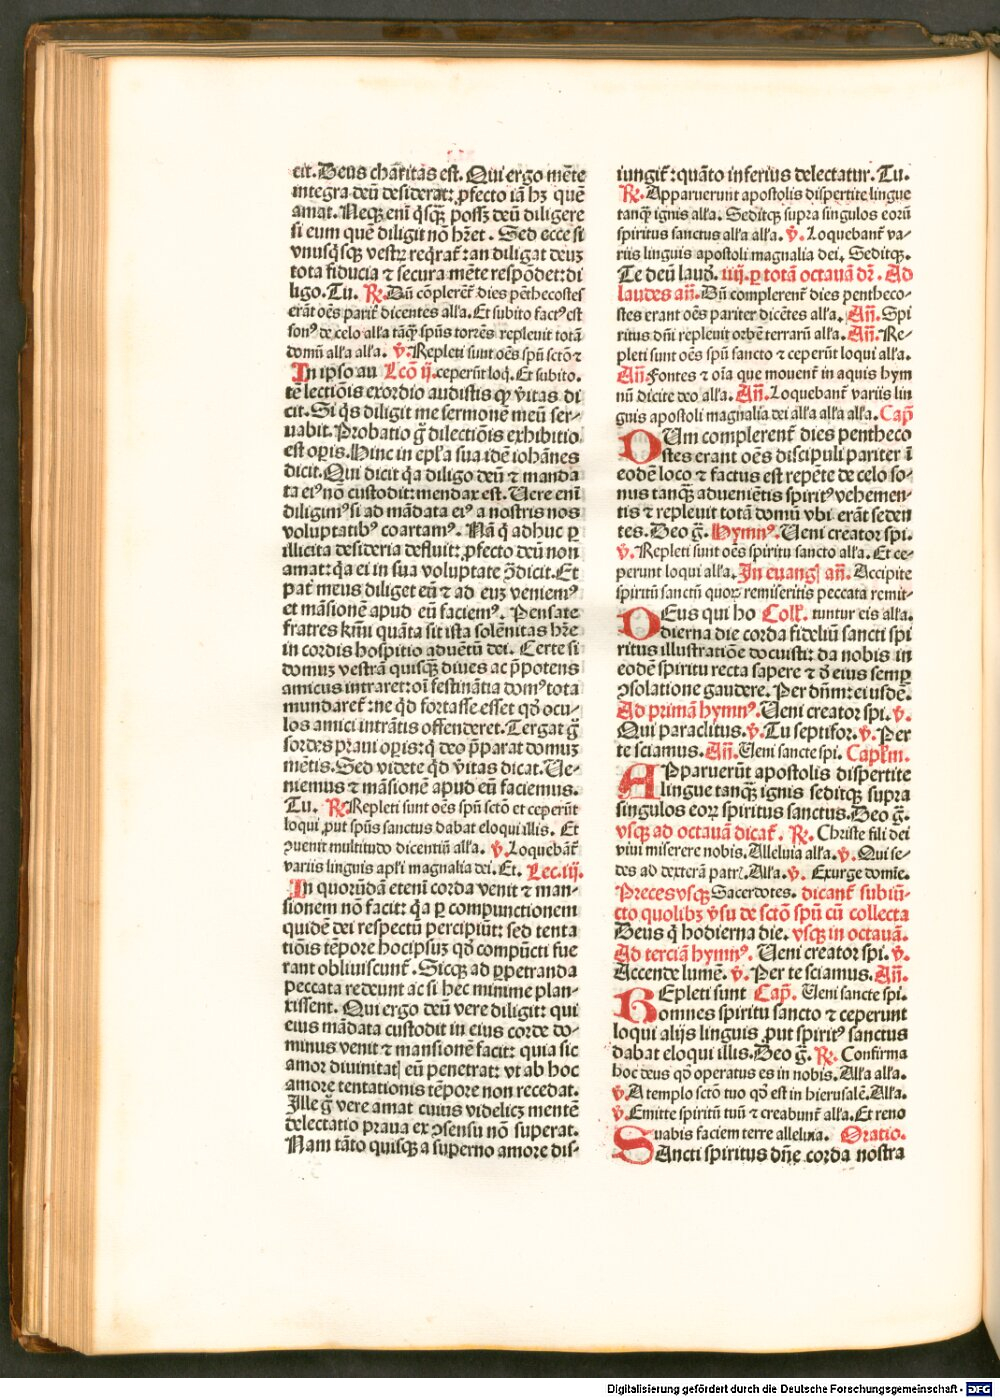 cit. Deus charitas est. Qui ergo mẽte
integra deũ desiderat: ꝓfecto iã hꝫ quẽ
amat. Neqꝫ eni q̃sqꝫ possꝫ deũ diligere
si eum quẽ diligit nõ hr̃et. Sed ecce si
vnusq̃sqꝫ vestrꝝ reqrat᷑: an diligat deuꝫ
tota fiducia ⁊ secura mẽte respõdet: di
ligo. Tu. ℟. Dũ cõplerẽt᷑ dies pẽthecostes
erãt oẽs parit᷑ dicentes alľa. Et subito factꝰ est
sonꝰ de celo alľa tãqꝫ spũs torẽtis repleuit totã
domũ alľa alľa. ℣. Repleti sunt oẽs spũ sctõ ⁊
In ipso au Lcõ ij. ceperũt loq̃. Et subito.
tẽ lectiõis exordio audistis qꝙ v̾itas di
cit. Si q̃s diligit me sermonẽ meũ ser-
uabit. Probatio g̃ dilectiõis exhibitio
est oꝑis. Hinc in epľa sua idẽ iohãnes
dicit. Qui dicit q̃a diligo deũ ⁊ manda
ta eiꝰ nõ custodit: mendax est. Uere eni
diligimꝰ si ad mãdata eiꝰ a nostris nos
voluptatibꝰ coartamꝰ. Nã q̃ adhuc ꝑ
illicita desideria defluit: ꝓfecto deũ non
amat: q̃a ei in sua voluptate ꝯ̃dicit. Et
pat᷑ meus diliget eũ ⁊ ad euꝫ veniemꝰ
et mãsionẽ apud eũ faciemꝰ. Pensate
fratres kr̃mi quãta sit ista solẽnitas hr̃e
in cordis hospitio aduẽtũ dei. Certe si
domuꝫ vestrã quisqꝫ diues ac p̃potens
amicus intraret: oĩ festinãtia domꝰ tota
mundaret᷑: ne q̃d fortasse esset qd̾ ocu-
los amici intrãtis offenderet. Tergat g̃
sordes praui oꝑis: q̃ deo p̃parat domuꝫ
mẽtis. Sed videte q̃d v̾itas dicat. Ue-
niemus ⁊ mãsionẽ apud eũ faciemus.
Tu. ℟. Repleti sunt oẽs spũ sctõ et ceperũt
loqui ꝓut spũs sanctus dabat eloqui illis. Et
ꝯuenit multitudo dicentiũ alľa. ℣. Loquebãt᷑
variis linguis apľi magnalia dei. Et. Lec. iij.
In quorũdã eteni corda venit ⁊ man-
sionem nõ facit: q̃a ꝑ compunctionem
quidẽ dei respectũ percipiũt: sed tenta
tiõis tẽpore hocipsuꝫ qd̾ compũcti fue
rant obliuiscunt᷑. Sicqꝫ ad ꝑpetranda
peccata redeunt ac si hec minime plan-
xissent. Qui ergo deũ vere diligit: qui
eius mãdata custodit in eius corde do-
minus venit ⁊ mansionẽ facit: quia sic
amor diuinitatꝭ eũ penetrat: vt ab hoc
amore tentationis tẽpore non recedat.
Ille g̃ vere amat cuius videlicꝫ mentẽ
delectatio praua ex ꝯsensu nõ superat.
Nam tãto quisqꝫ a superno amore dis-
iungit᷑: quãto inferius delectatur. Tu.
℟. Apparuerunt apostolis dispertite lingue
tanqꝫ ignis alľa. Seditqꝫ supra singulos eorũ
spiritus sanctus alľa alľa. ℣. Loquebant᷑ va-
riis linguis apostoli magnalia dei. Seditqꝫ.
Te deũ laud̾. iiij. ꝑ totã octauã dr̃. Ad
laudes añ. Dũ complerent᷑ dies pentheco-
stes erant oẽs pariter dicẽtes alľa. Añ. Spi
ritus dñi repleuit orbẽ terrarũ alľa. Añ. Re-
pleti sunt oẽs spũ sancto ⁊ ceperũt loqui alľa.
Añ. Fontes ⁊ oĩa que mouent᷑ in aquis hym
nũ dicite deo alľa. Añ. Loquebant᷑ variis lin
guis apostoli magnalia dei alľa alľa alľa. Cap̃
DUm complerent᷑ dies pentheco
stes erant oẽs discipuli pariter ĩ
eodẽ loco ⁊ factus est repẽte de celo so-
nus tanqꝫ adueniẽtis spiritꝰ vehemen-
tis ⁊ repleuit totã domũ vbi erãt seden
tes. Deo g̃. Hymnꝰ. Ueni creator spi.
℣. Repleti sunt oẽs spiritu sancto alľa. Et ce-
perunt loqui alľa. In euangꝭ añ. Accipite
spiritũ sanctũ quoꝝ remiseritis peccata remit-
DEus qui ho Coll. tuntur eis alľa.
dierna die corda fideliũ sancti spi
ritus illustratiõe docuisti: da nobis in
eodẽ spiritu recta sapere ⁊ d̾ eius semꝑ
ꝯsolatione gaudere. Per dñm: eiusdẽ.
Ad primã hymnꝰ. Ueni creator spi. ℣.
Qui paraclitus. ℣. Tu septifor. ℣. Per
te sciamus. Añ. Ueni sancte spi. Capľm.
APparuerũt apostolis dispertite
lingue tanqꝫ ignis seditqꝫ supra
singulos eoꝝ spiritus sanctus. Deo g̃.
vsqꝫ ad octauã dicat᷑. ℟. Christe fili dei
viui miserere nobis. Alleluia alľa. ℣. Qui se-
des ad dexterã patrꝭ. Alľa. ℣. Exurge domie.
Preces vsqꝫ Sacerdotes. dicant᷑ subiũ-
cto quolibꝫ v̾su de sctõ spũ cũ collecta
Deus q̃ hodierna die. vsqꝫ in octauã.
Ad terciã hymnꝰ. Ueni creator spi. ℣.
Accende lumẽ. ℣. Per te sciamus. Añ.
REpleti sunt Cap̃. Ueni sancte spi.
omnes spiritu sancto ⁊ ceperunt
loqui alijs linguis ꝓut spiritꝰ sanctus
dabat eloqui illis. Deo g̃. ℟. Confirma
hoc deus qd̾ operatus es in nobis. Alľa alľa.
℣. A templo sctõ tuo qd̾ est in hierusalẽ. Alľa.
℣. Emitte spiritũ tuũ ⁊ creabunt᷑ alľa. Et reno
uabis faciem terre alleluia. Oratio.
SAncti spiritus dñe corda nostra
Digitalisierung gefördert durch die Deutsche Forschungsgemeinschaft - DFG